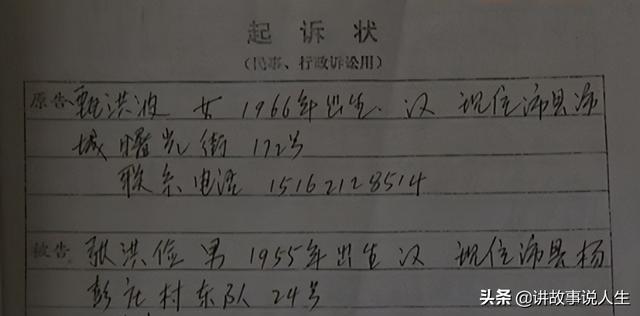 起诉状
(民事、行政诉讼用)
原告 甄洪波 女 1966年出生. 汉 现住沛县沛
城 曙光街 172号
联系电话 15162128514
被告 张洪俭 男 1955年出生 汉 现住沛县杨
彭庄村东队 24号
头条 @讲故事说人生